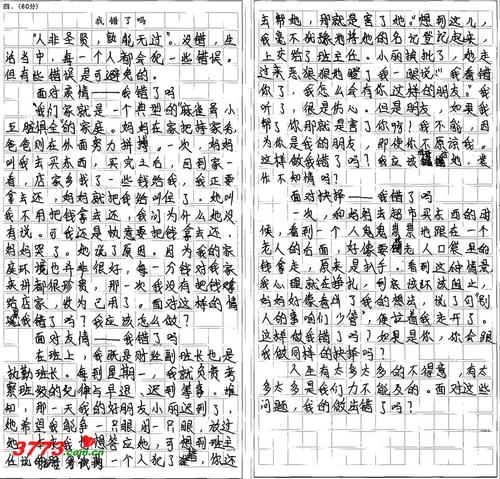 四、(60分)
我错了吗
"人非圣贤，孰能无过"。没错，生
活当中，每一个人都会犯一些错误。
但有些错误是可避免的。
面对亲情——我错了吗
我们家就是一个典型的"麻雀虽小
五脏俱全"的家庭。妈妈在家把持家务，
爸爸则在外面努力拼搏。一次，妈妈
叫我去买东西，买完之后，回到家一
看，店家多找了一些钱给我，我正要
拿去还，妈妈就把我给叫住了。她叫
我不用把钱拿去还，我问为什么她没
有说。可我还是执意要把钱拿去还，
妈妈哭了。她说了原因。因为我的家
庭环境也并非很好，每一分钱对我家
来讲都很珍贵，那一次我没有把钱还
给店家，收为己用了。面对这样的情
我错了吗？我应该怎么做？
面对友情——我错了吗
在班上，我既是财经副班长也是
执勤班长。每到星期一，我就负责考
察班级的纪律与早退、迟到等事。谁
知，那一天我的好朋友小丽迟到了，
她希望我能争一只眼闭一只眼，放过
她。本来我想答应她，可想到班主
任说 一个人犯了错，你还
去帮她，那就是害了她。"想到这儿，
我毫不犹豫地将她的名记登记起来，
上交给了班主任。小丽被批了，她走
过来恶狠狠地瞪了我一眼说"我看错
你了，我怎么会有你这样的朋友。"我
听了，很是伤心。但是朋友，如果我
帮了你那就是害了你啊？我不能，因
为你是我的朋友，那使你不原谅我。
这样做我错了吗？我应该 她，装
作不知情吗？
面对抉择——我错了吗
一次，和妈妈去超市买东西的时
候，看到一个人鬼鬼祟祟地跟在一个
老人的后面，好像要 走人口袋里的
钱拿走，原来是扒手。看到这种情景
我心理就在挣扎，到底该环该阻止，
妈妈好像看懂了我的想出，说了句"别
人的事咱们少管"，便拉着我走开了。
这样做我错了吗？如果是你，你会跟
我做同样的抉择吗？
人生有太多太多的不得意，有太
多太多是我们力不能及的。面对这些
问题，我的做出错了吗？
3773.com.cn